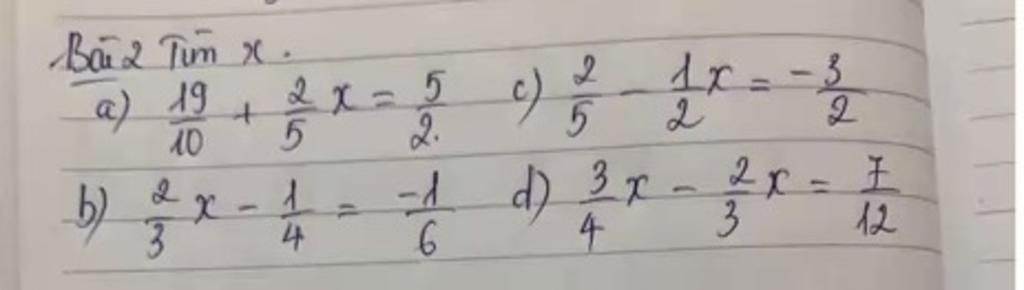 Bài 2 Tìm x.
a) 19/10 + 2/5 x = 5/2. c) 2/5 - 1/2 x = -3/2
b) 2/3 x - 1/4 = -1/6 d) 3/4 x - 2/3 x = 7/12